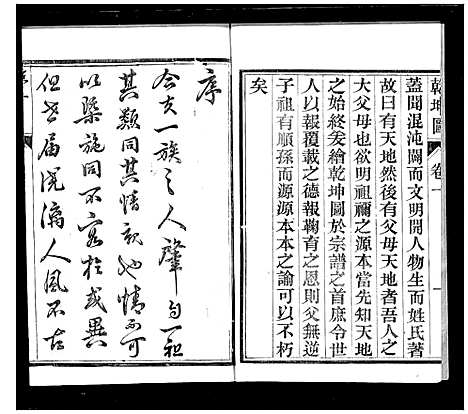 乾坤圖 卷一 一
蓋聞混沌闢而文明開人物生而姓氏著
故曰有天地然後有父母天地者吾人之
大父母也欲明祖禰之源本當先知天地
之始終爰繪乾坤圖於宗譜之首庶令世
人以報覆載之德報鞠育之恩則父無逆
子祖有順孫而源源本本之諭可以不朽
矣
序
今夫一族之人肇自一祖
其類同其情親也情而可
以槩施同不容於或異
但世届澆漓人風不古